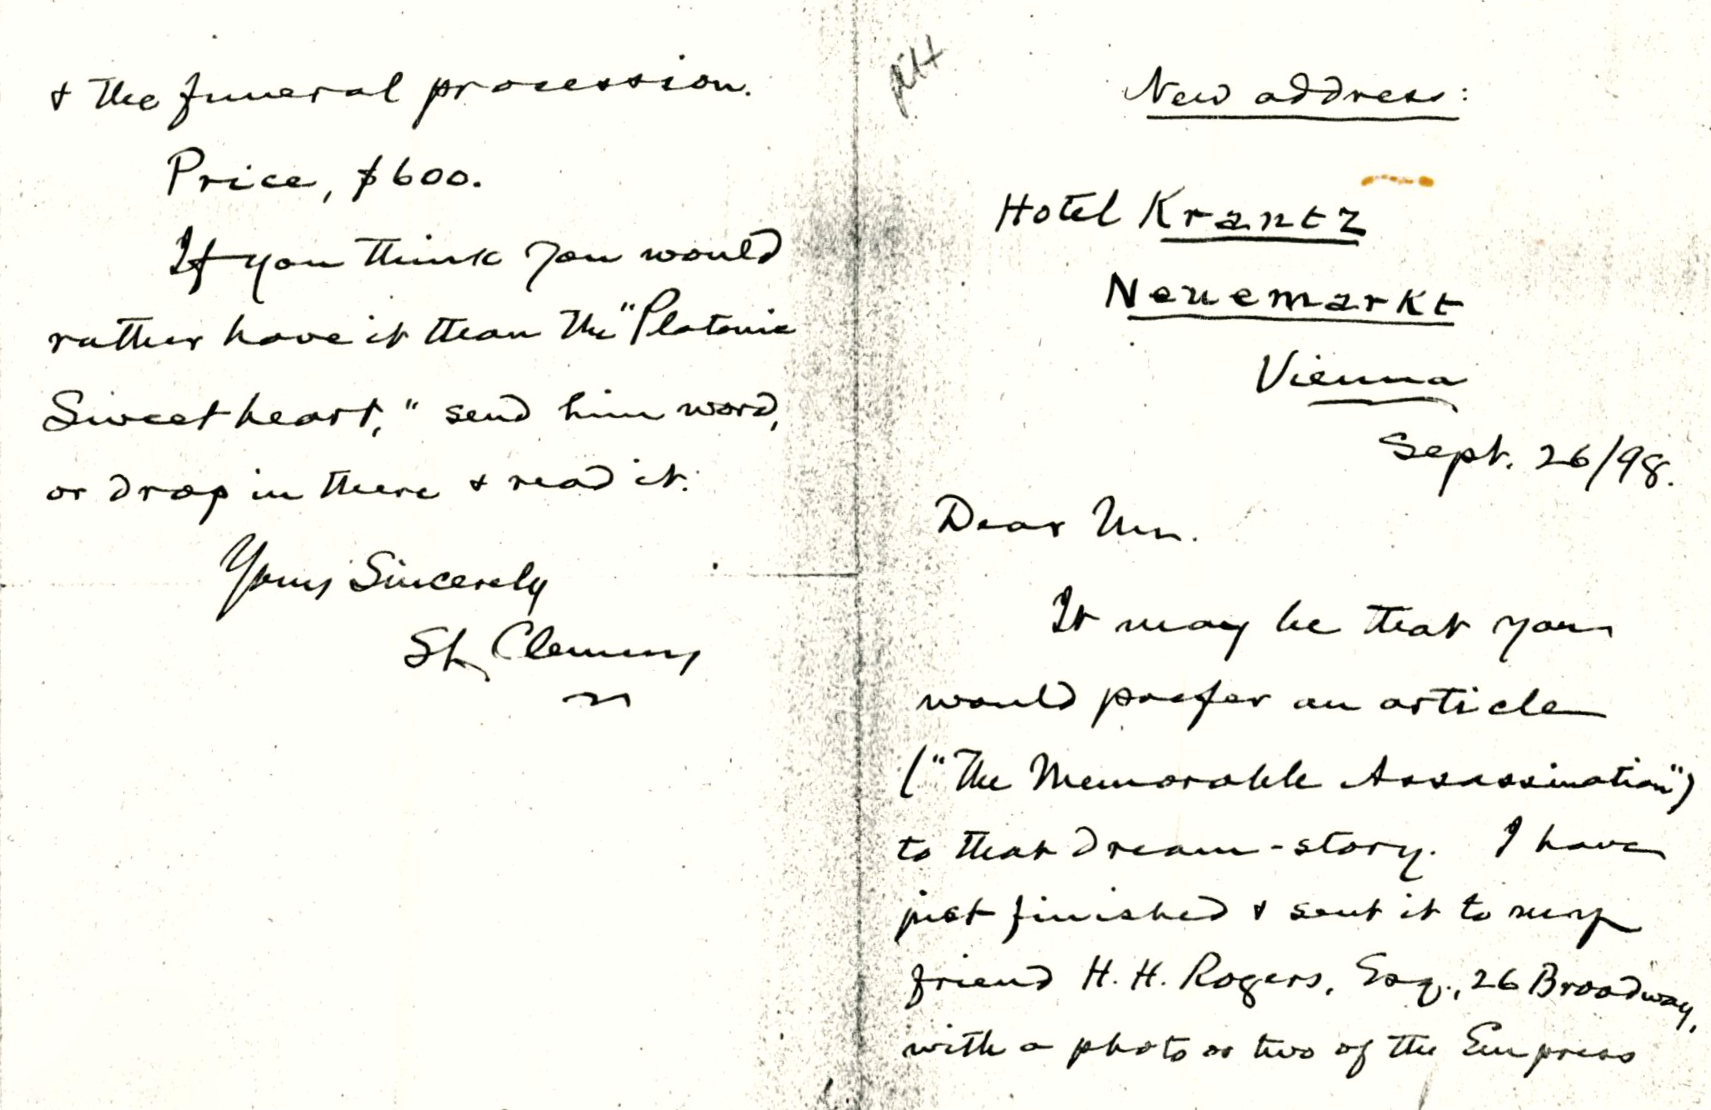 New address:
Hotel Krantz
Neuemarkt
Vienna
Sept. 26/98.
Dear Mr.
It may be that you
would prefer an article
("The Memorable Assassination")
to that dream-story. I have
just finished & sent it to my
friend H. H. Rogers, Esq., 26 Broadway,
with a photo or two of the Empress
& the funeral procession.
Price, $600.
If you think you would
rather have it than the "Platonic
Sweetheart," send him word,
or drop in there & read it.
Yours Sincerely
SL Clemens